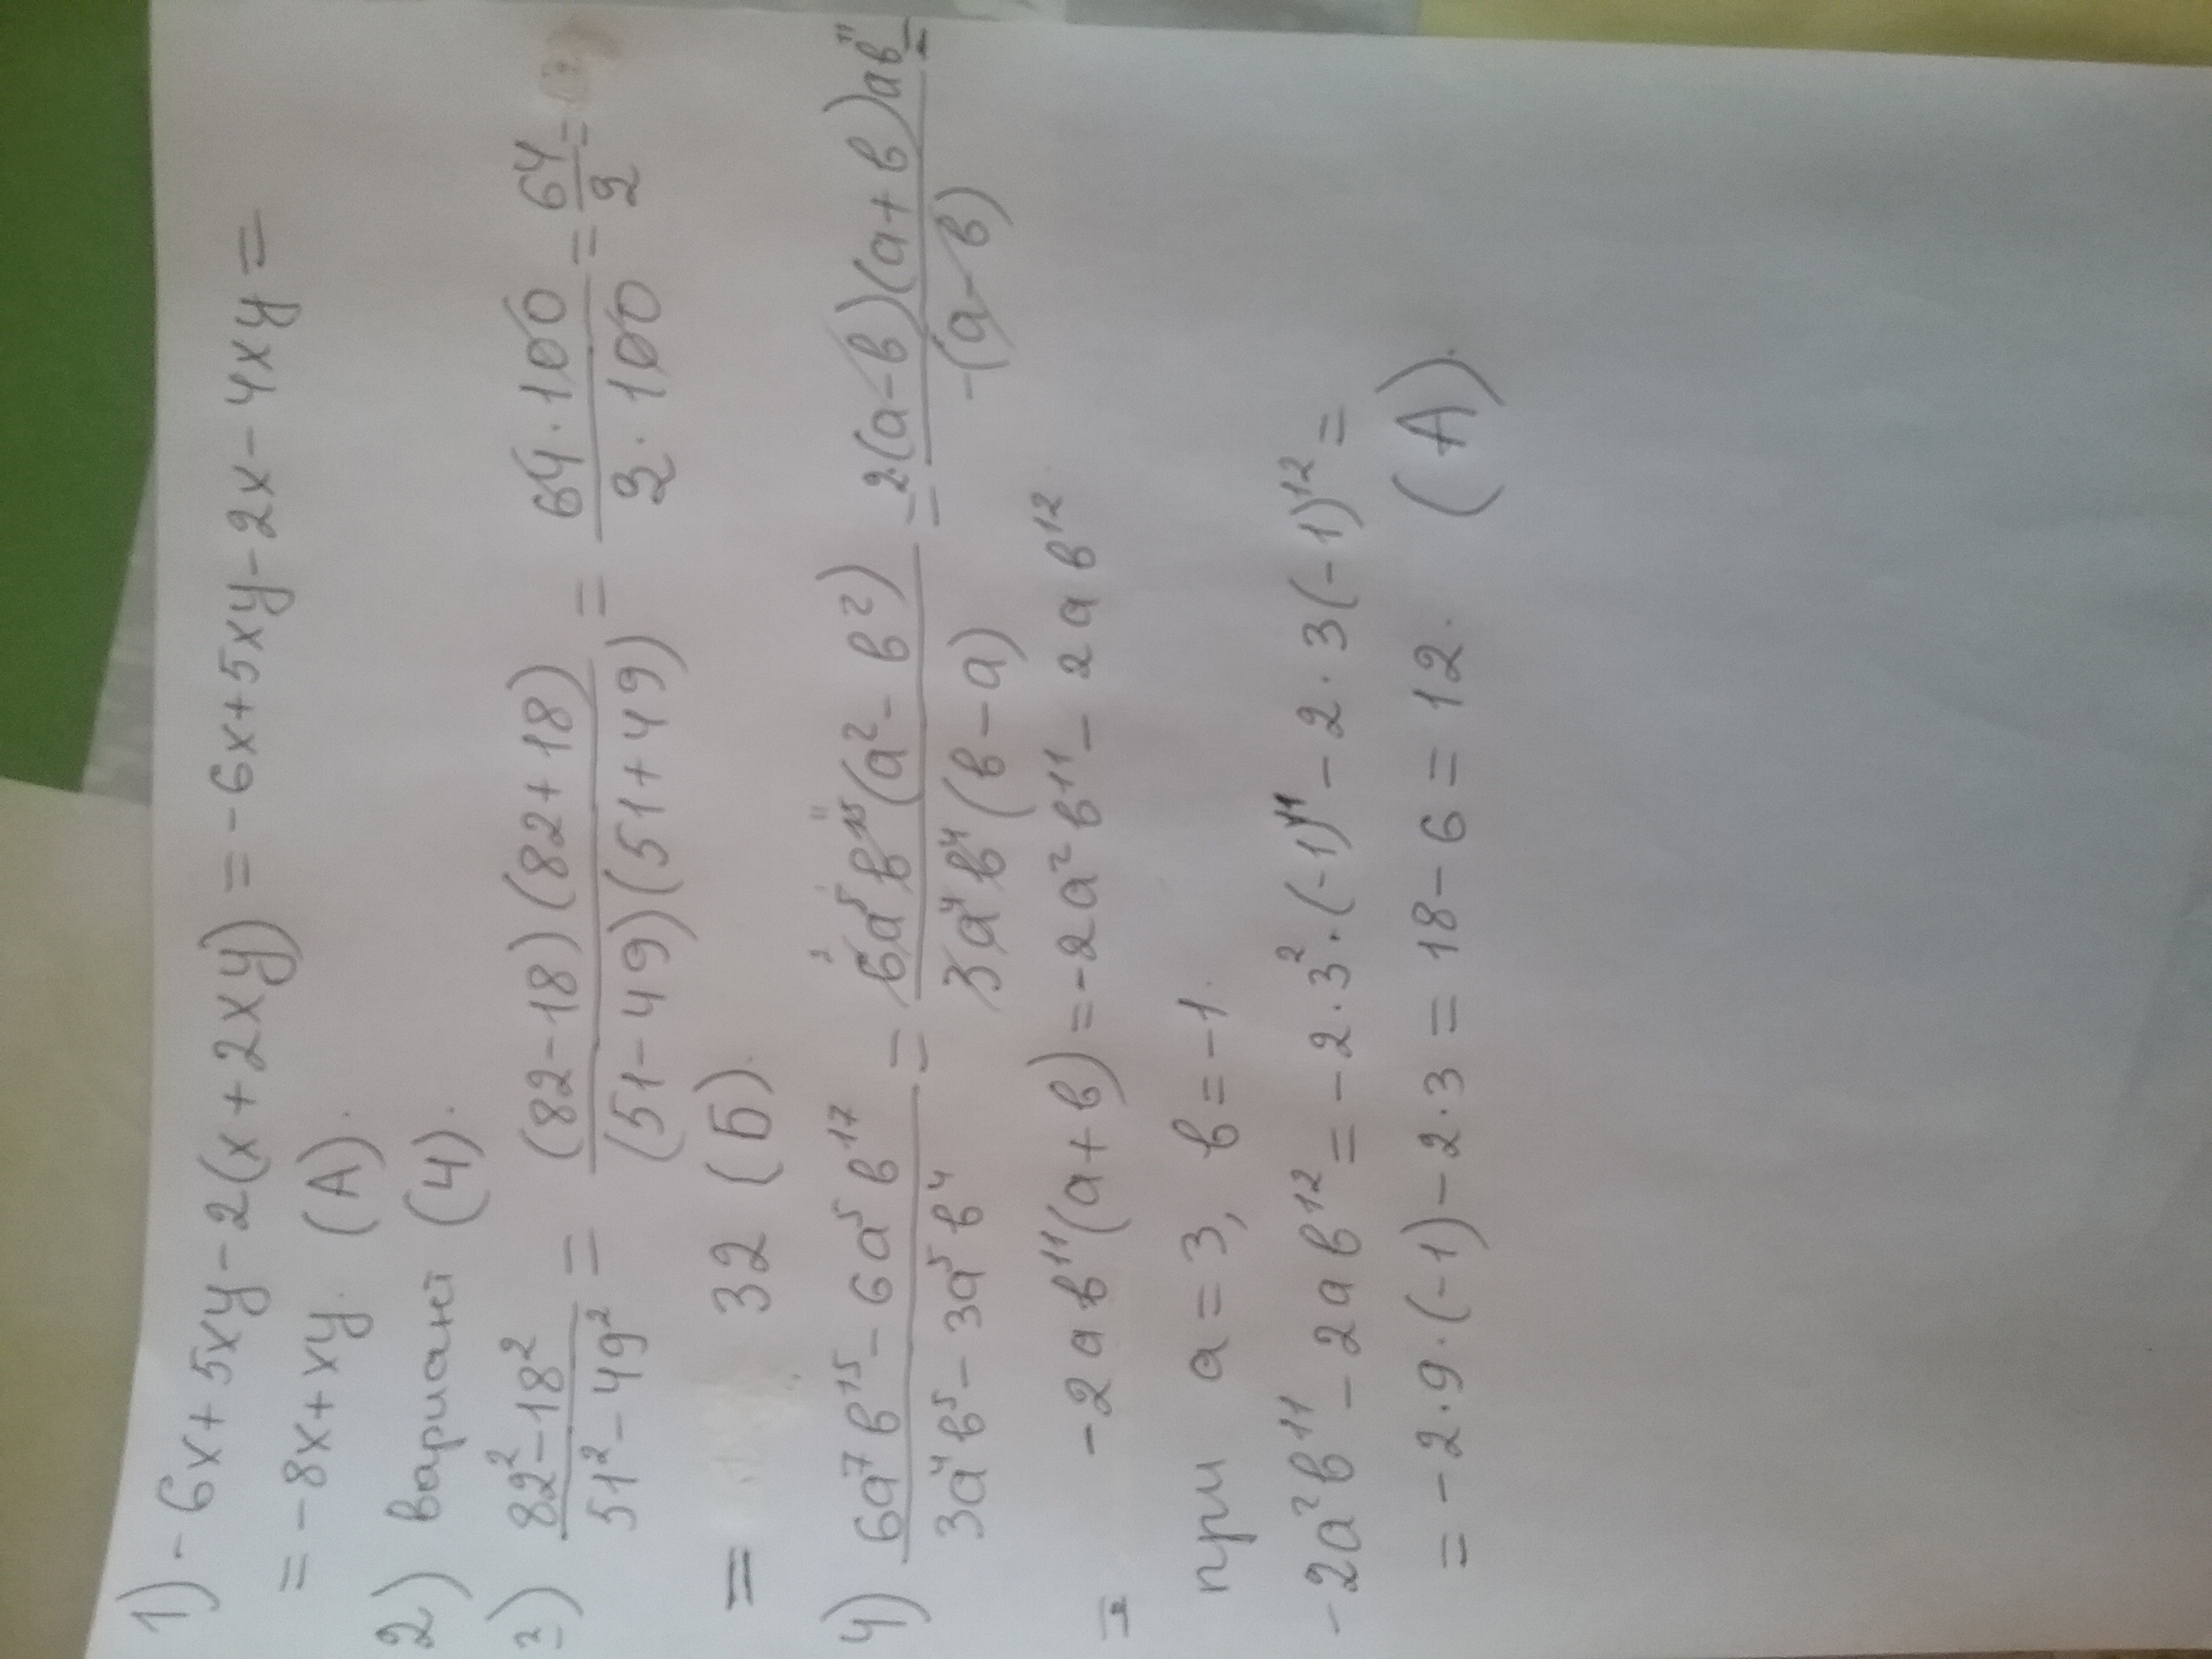 1) -6x+5xy-2(x+2xy)=-6x+5xy-2x-4xy=
=-8x+xy. (А).
2) вариант (4).
3) (82²-18²)/(51²-49²) = ((82-18)(82+18))/((51-49)(51+49)) = (64·100)/(2·100) = 64/2 =
= 32 (Б).
4) (6a⁷b¹⁵-6a⁵b¹⁷)/(3a⁴b⁵-3a⁵b⁴) = (6a⁵b¹⁵(a²-b²))/(3a⁴b⁴(b-a)) = (2(a-b)(a+b)ab¹¹)/(-(a-b)) =
= -2ab¹¹(a+b)=-2a²b¹¹-2ab¹²
при a=3, b=-1.
-2a²b¹¹-2ab¹²=-2·3²·(-1)¹¹-2·3(-1)¹²=
=-2·9·(-1)-2·3=18-6=12. (А).